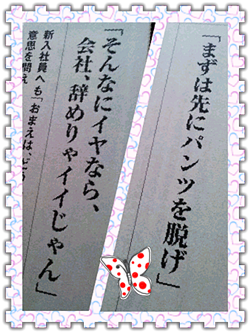 『まずは先にパンツを脱げ』
『そんなにイヤなら、
会社、辞めりゃイイじゃん』
新入社員へも「おまえは、どう
意思を問え